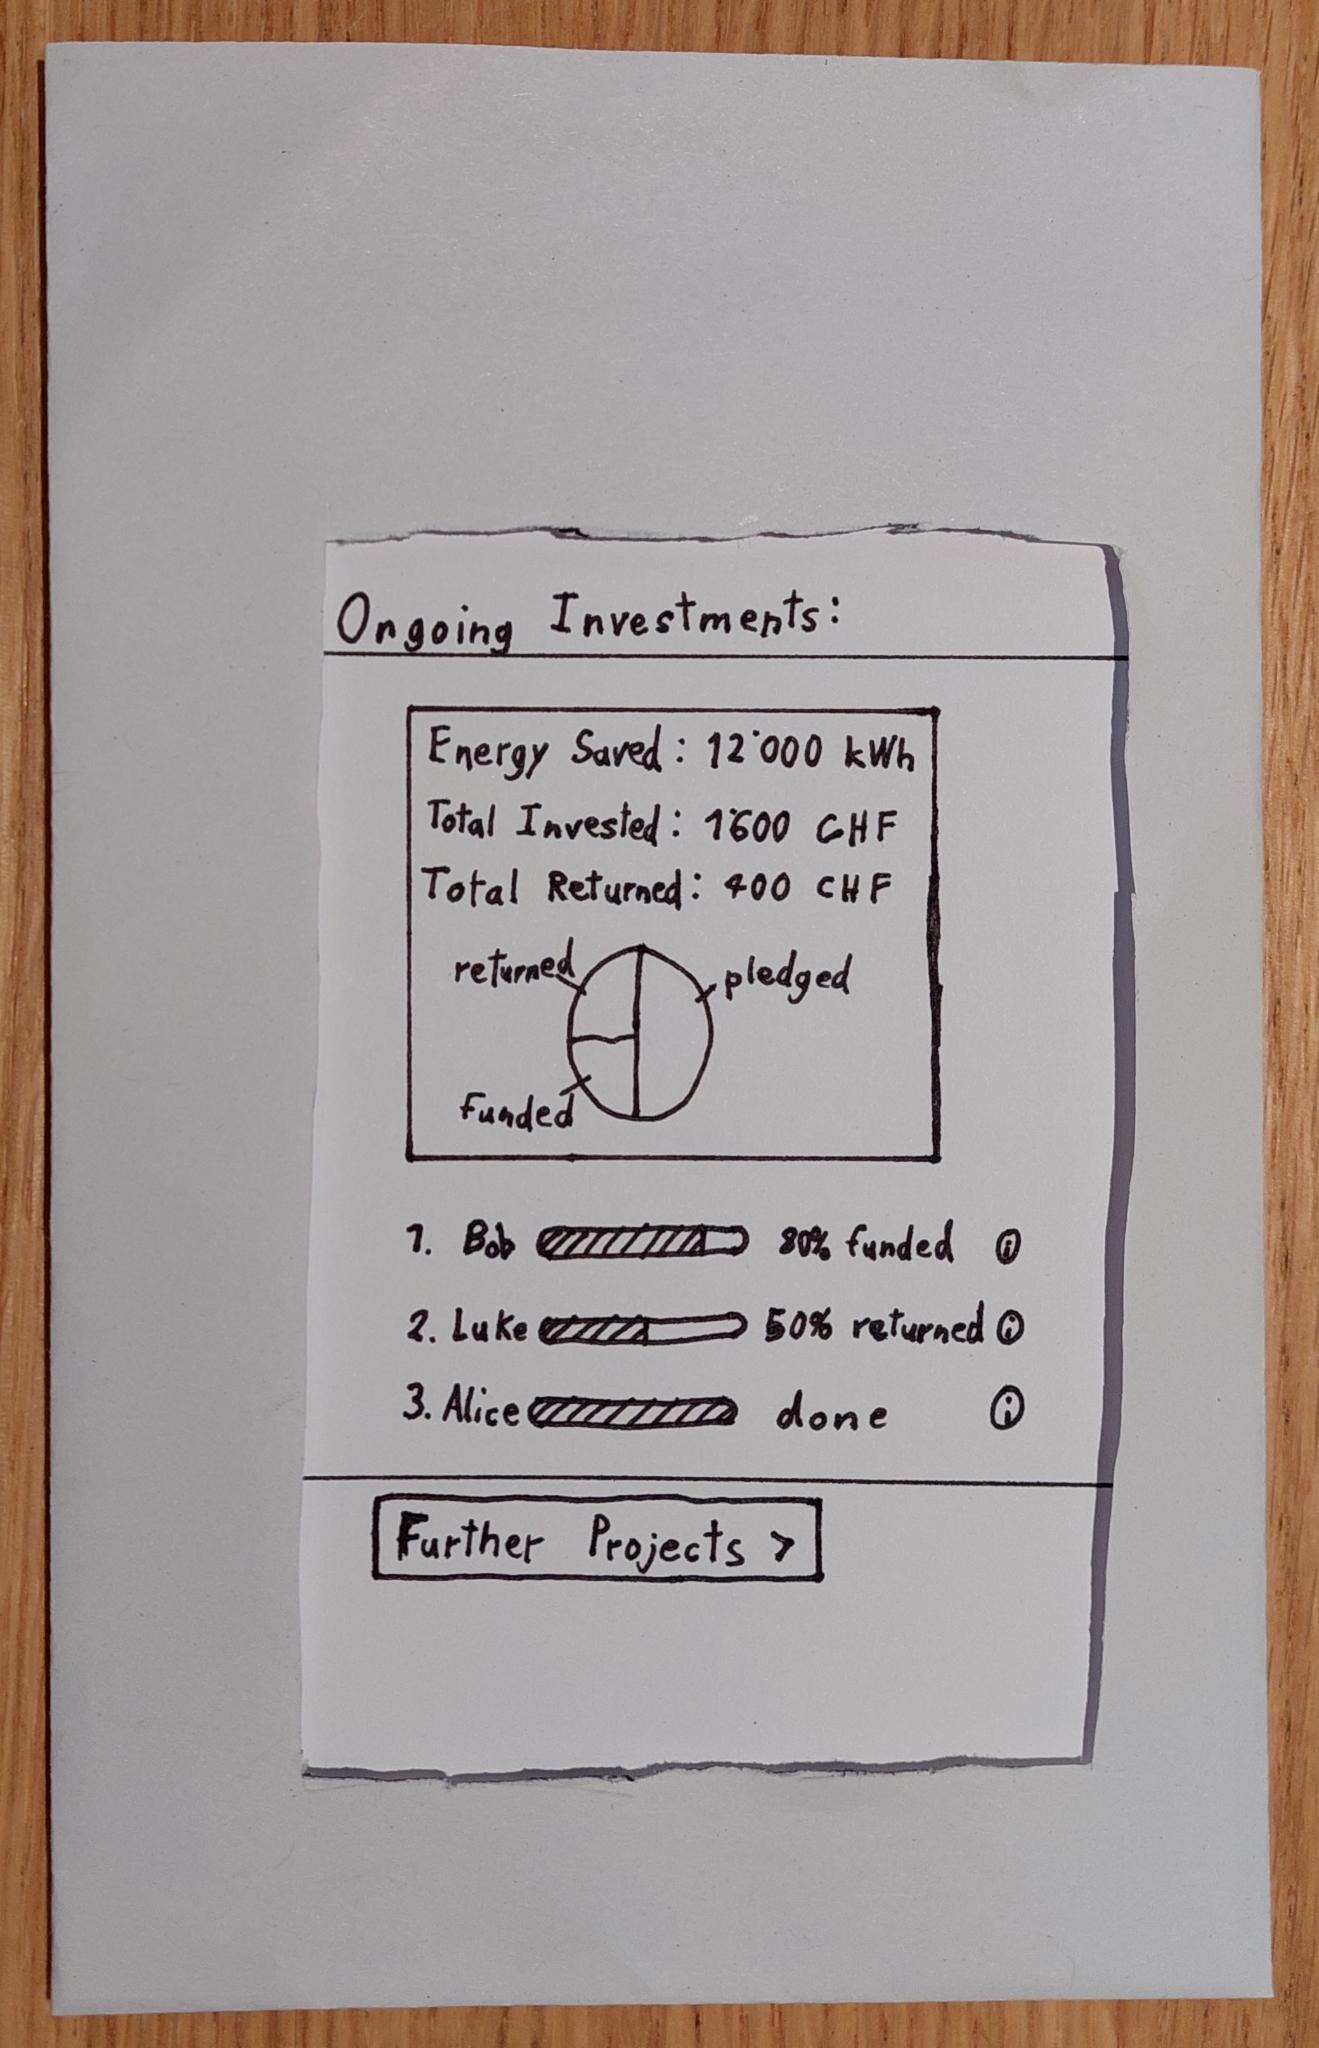 Ongoing Investments:
Energy Saved: 12'000 kWh
Total Invested: 1'600 CHF
Total Returned: 400 CHF
returned
pledged
funded
1. Bob 80% funded i
2. Luke 50% returned i
3. Alice done i
Further Projects >